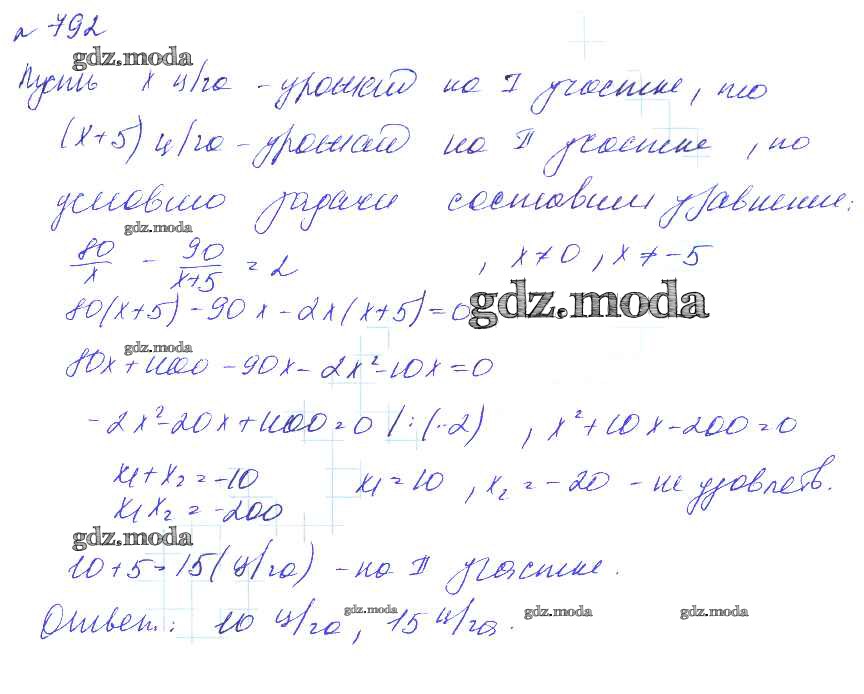 № 792
gdz.moda
Пусть x ц/га - урожай на I участке, то
(x+5) ц/га - урожай на II участке, по
условию задачи составим уравнение:
gdz.moda
80/x - 90/(x+5) = 2 , x≠0, x≠-5
80(x+5) - 90x - 2x(x+5) = 0
gdz.moda
gdz.moda
80x + 400 - 90x - 2x² - 10x = 0
-2x² - 20x + 400 = 0 /:(-2) , x² + 10x - 200 = 0
x₁ + x₂ = -10 x₁ = 10, x₂ = -20 - не удовлетв.
x₁x₂ = -200
gdz.moda
10+5=15(ц/га) - на II участке.
Ответ: 10 ц/га, 15 ц/га.
gdz.moda gdz.moda gdz.moda